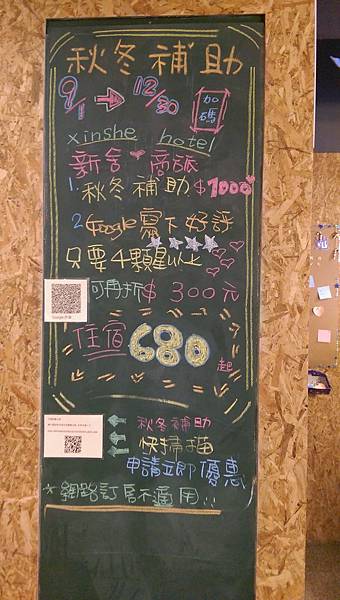 秋冬補助
9/1 → 12/30 加碼
xinshe hotel
新舍 商旅
1. 秋冬補助 $1000
2. Google寫下好評
只要4顆星以上
可再折$ 300元
住宿680起
秋冬補助
快掃描
申請立即優惠
*網路訂房不適用